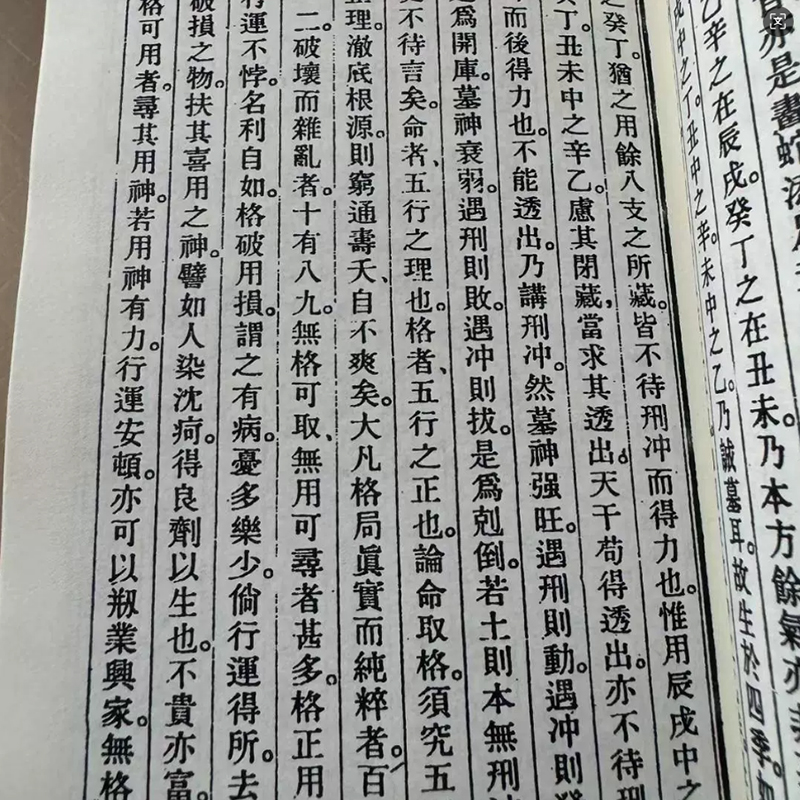 亦是畫蛇添
乙辛之在辰戌。癸丁之在丑未。乃本方餘氣亦
戌中之丁。丑中之辛。未中之乙。乃誠墓耳。故生於四季。
之癸丁。猶之用餘八支之所藏。皆不待刑冲而得力也。惟用辰戌中之
丁。丑未中之辛乙。慮其閉藏，當求其透出。天干苟得透出。亦不待刑
而後得力也。不能透出。乃講刑冲。然墓神强旺。遇刑則動。遇冲則發
之爲開庫。墓神衰弱。遇刑則敗。遇冲則拔。是爲剋倒。若土則本無刑冲
不待言矣。命者、五行之理也。格者、五行之正也。論命取格。須究五
理。澈底根源。則窮通壽夭、自不爽矣。大凡格局眞實而純粹者。百
二。破壞而雜亂者。十有八九。無格可取、無用可尋者甚多。格正用
行運不悖。名利自如。格破用損。謂之有病。憂多樂少。倘行運得所。去
破損之物。扶其喜用之神。譬如人染沈疴。得良劑以生也。不貴亦富。
格可用者。尋其用神。若用神有力。行運安頓。亦可以刱業興家。無格